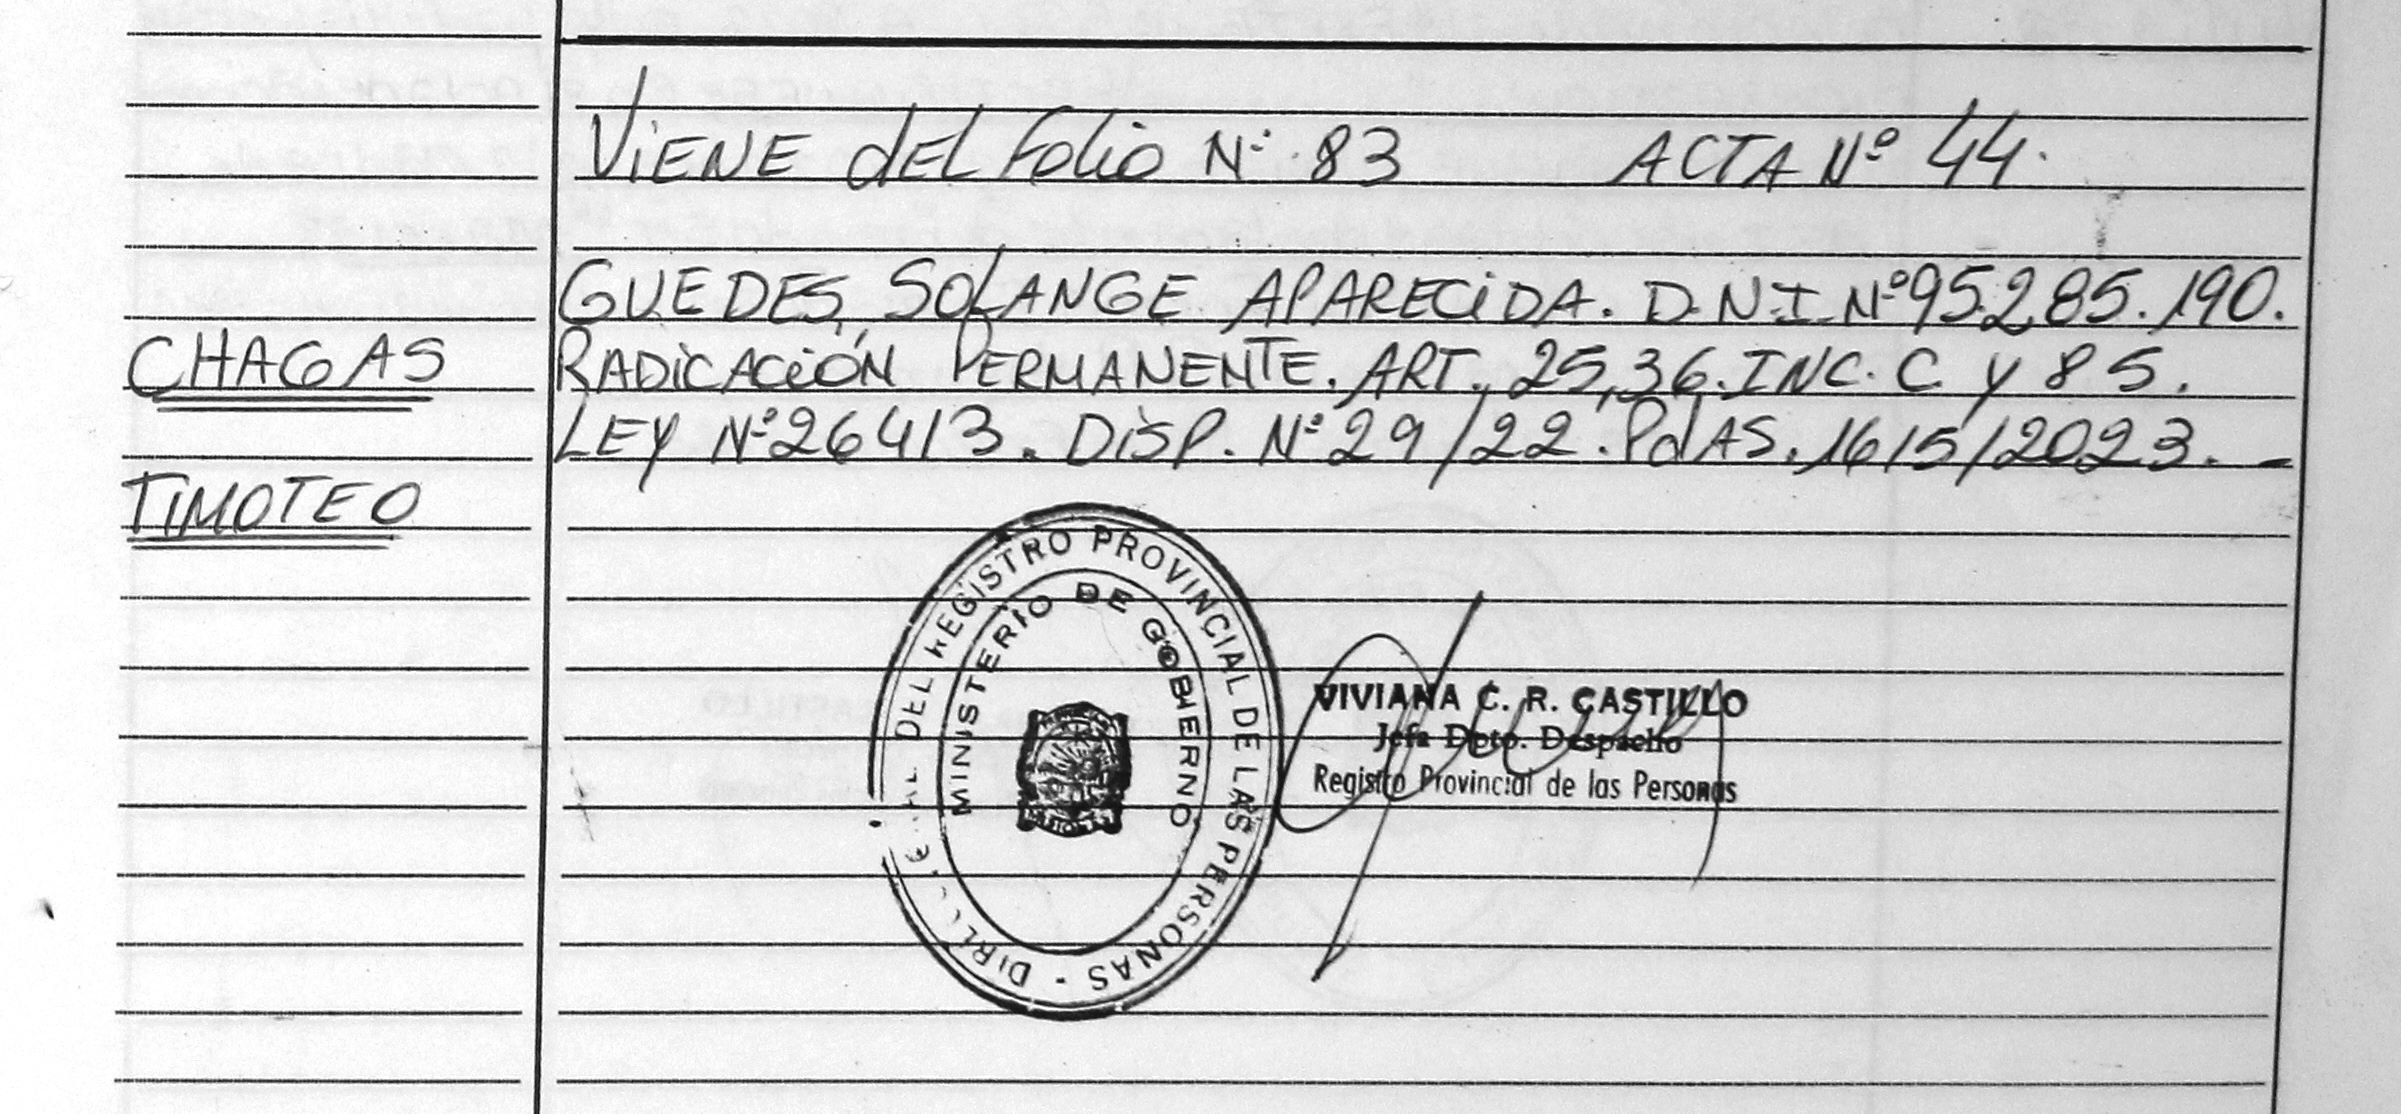 VIENE dEL Folio Nº 83 ACTA Nº 44.
GUEDES, SOLANGE APARECIDA. D.N.I Nº 95.285.190.
CHAGAS
RADICACIÓN PERMANENTE. ART. 25,36. INC. C y 85.
LEY Nº 26413. DISP. Nº 29/22. PdAS. 16/5/2023. -
TIMOTEO
DEL REGISTRO PROVINCIAL DE LAS PERSONAS -
MINISTERIO DE GOBIERNO
VIVIANA C. R. CASTILLO
Jefa Dpto. Despacho
Registro Provincial de las Personas